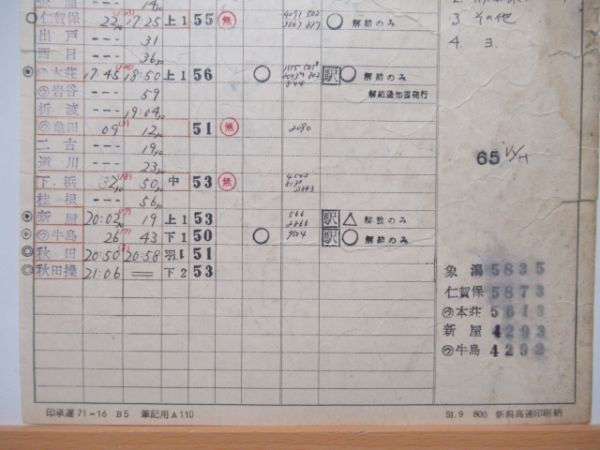 仁賀保 22 17.25 上1 55 無 4091 502 解結のみ
出戸 --- 31
西目 --- 36
本荘 17.45 18.50 上1 56 駅 解結のみ
岩谷 --- 59 解結通知書発行
新波 --- 19.04
亀田 09 12 51 無 2090
二古 --- 19
道川 --- 23
下浜 32 50 中 53 無
桂根 --- 56
新屋 20.02 19 上1 53 566 駅 △ 解放のみ
牛島 26 43 下1 50 904 駅 解結のみ
秋田 20.50 20.58 羽1 51
秋田操 21.06 下2 53
3 その他
4 ヨ
65
象潟 5835
仁賀保 5873
ウ本荘 5618
新屋 4293
ウ牛島 4292
印承運 71-16 B5 筆記用A110
51.9 800 新潟高速印刷納